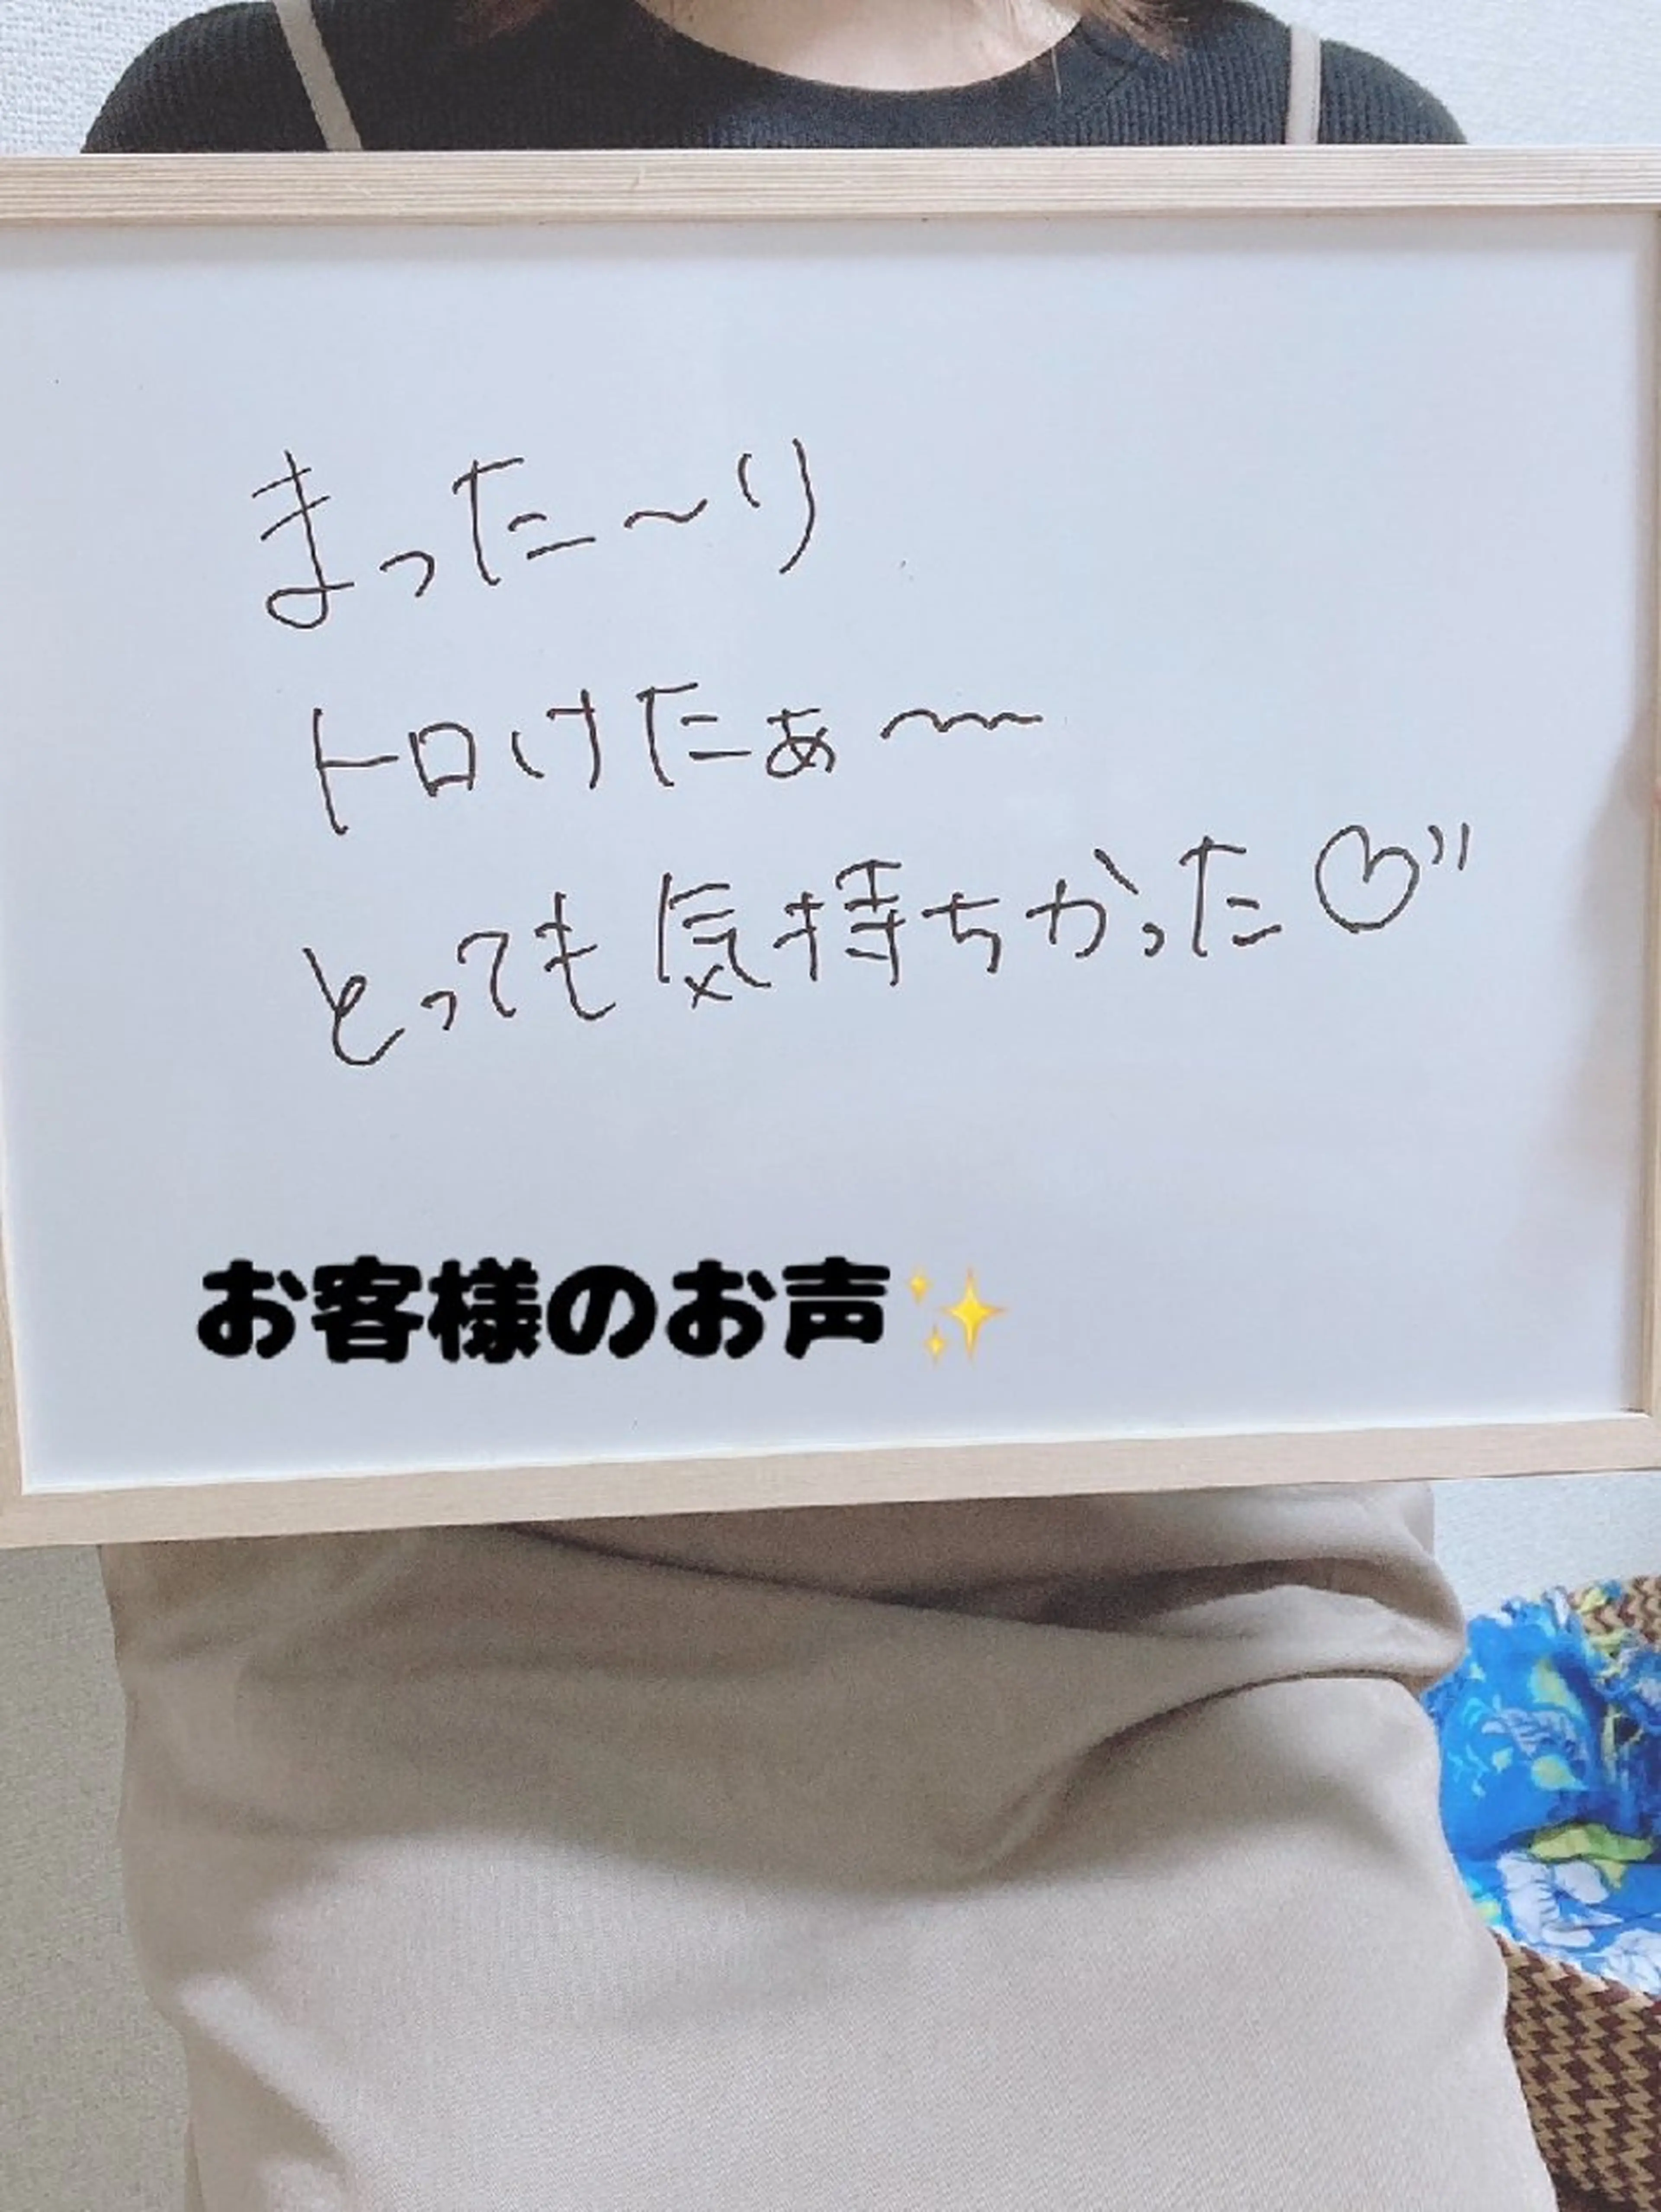 まった〜り
トロけたぁ〜〜
とっても気持ちかった♡"
お客様のお声✨